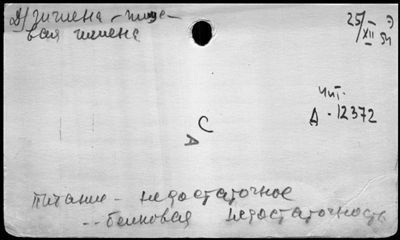 Д) гигиена - пище-
вая гигиена
25/XII 54
Э
Чит.
А - 12372
С
А
Питание - недостаточное
-- белковая недостаточность